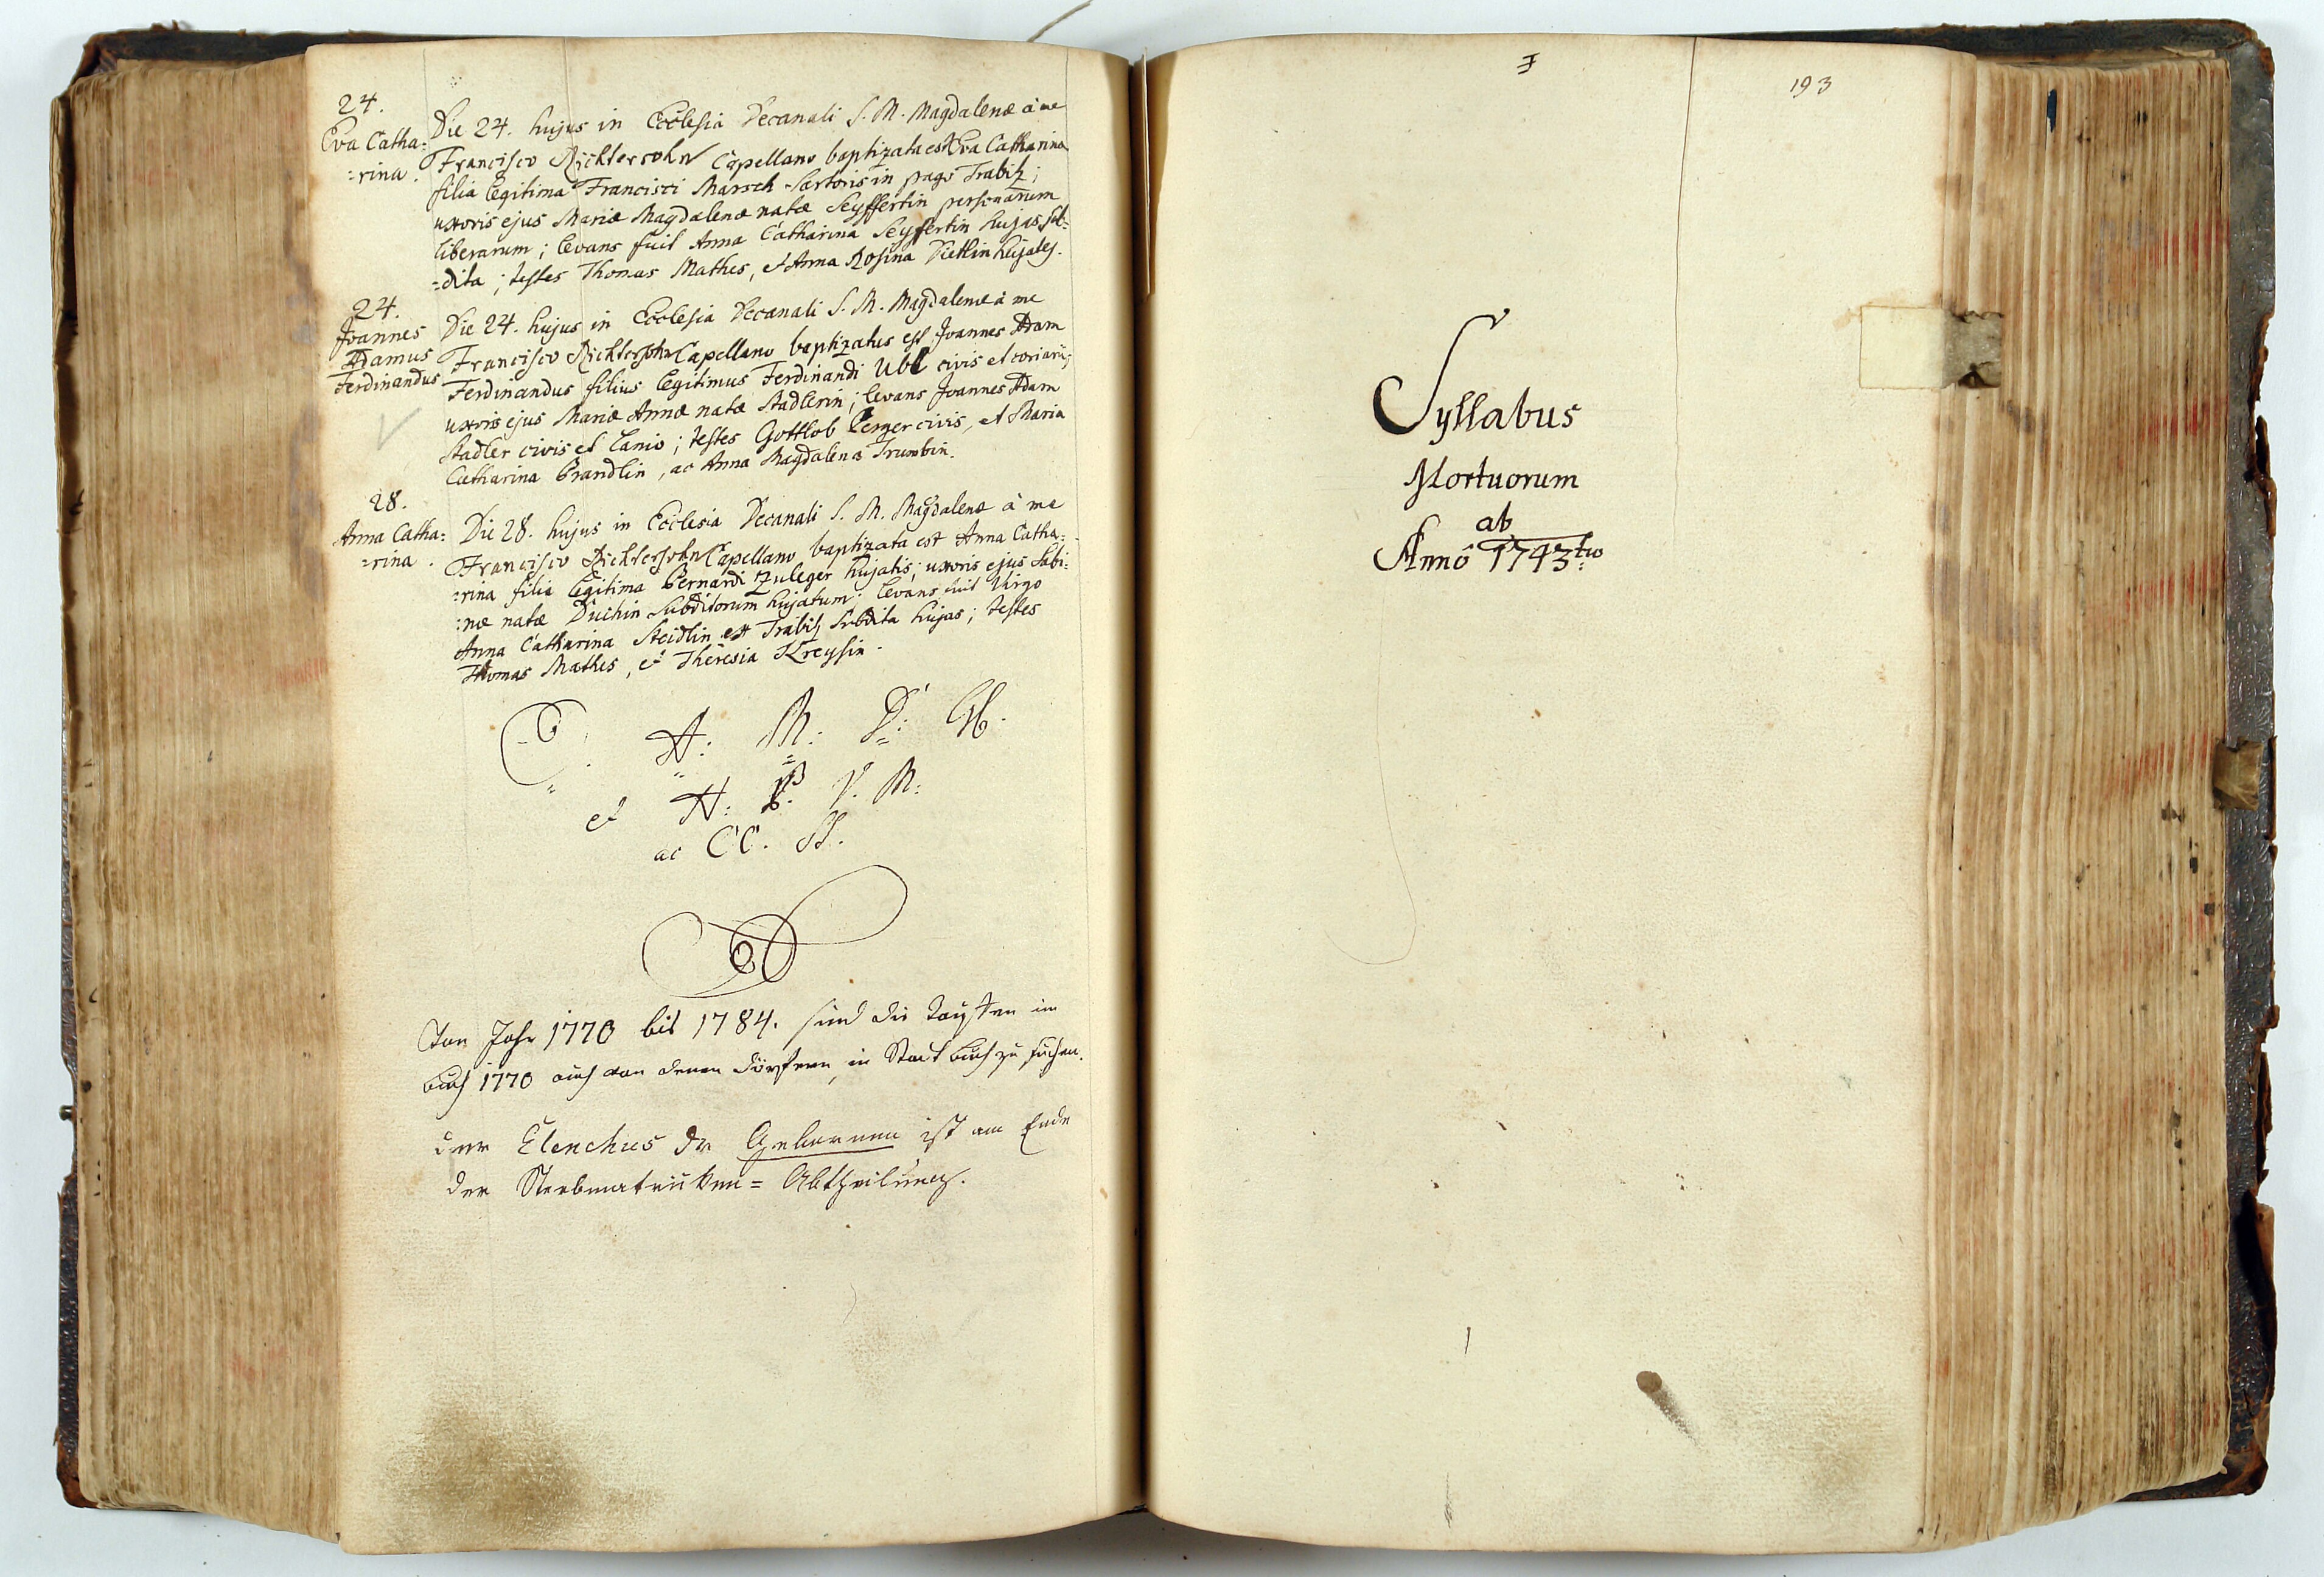 24.
Eva Catha:
:rina.
Die 24. hujus in Ecclesia Decanali S. M. Magdalenæ à me
Francisco Richtersohn Capellano baptizata est Eva Catharina
filia legitima Francisci Marsch Sartoris in pago Trabitz;
uxoris ejus Mariæ Magdalenæ natæ Seyffertin personarum
liberarum; levans fuit Anna Catharina Seyfertin hujas sub:
:dita; testes Thomas Mathes, et Anna Rosina Dietlin hujates.
24.
Joannes
Adamus
Ferdinandus
Die 24. hujus in Ecclesia Decanali S. M. Magdalenæ à me
Francisco Richtersohn Capellano baptizatus est Joannes Adam
Ferdinandus filius legitimus Ferdinandi Ubl civis et coriarii;
uxoris ejus Mariæ Annæ natæ Stadlerin; levans Joannes Adam
Stadler civis et Lanio; testes Gottlob civis, et Maria
Catharina Brandlin, ac Anna Magdalena Trumbin.
28.
Anna Catha:
:rina.
Die 28. hujus in Ecclesia Decanali S. M. Magdalenæ à me
Francisco Richtersohn Capellano baptizata est Anna Catha:
:rina filia legitima Bernardi Zuleger hujatis; uxoris ejus Sabi:
:næ natæ Duchin Subditorum hujatum: levans fuit Virgo
Anna Catharina Steidlin ex Trabitz subdita hujas; testes
Thomas Mathes, et Theresia Kreysin.
O. A: M: D: G.
et H: B. V. M:
ac CC. SS.
Von Jahr 1770 bis 1784. sind die Taufen im
buch 1770 auch von denen Dörfern, in Stadt buch zu suchen.
der Elenchus der Gebornen ist am Ende
der Sterbmatriken= Abtheilung.
193
Syllabus
Mortuorum
ab
Annô 1743tio